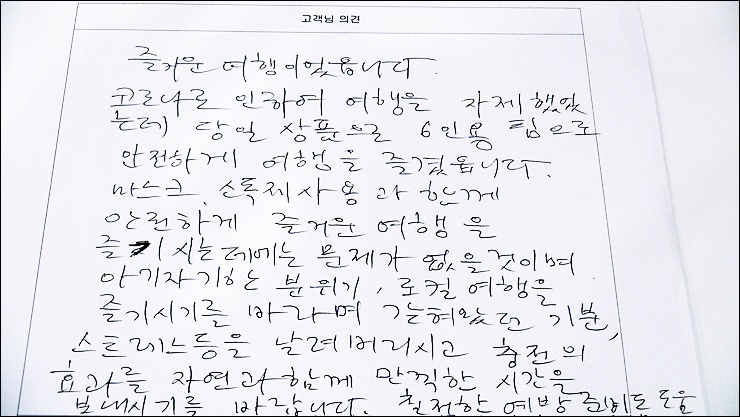 고객님 의견
즐거운 여행이었읍니다.
코로나로 인하여 여행을 자제했었
는데 당일 상품으로 6인용 팀으로
안전하게 여행을 즐겼읍니다.
마스크, 소독제사용과 함께
안전하게 즐거운 여행을
즐기시는데에는 문제가 없을것이며
아기자기하는 분위기, 로컬여행을
즐기시기를 바라며 갇혀왔던 기분,
스트레스등을 날려버리시고 충전의
효과를 자연과함께 만끽한 시간을
보내시기를 바랍니다. 철저한 예방